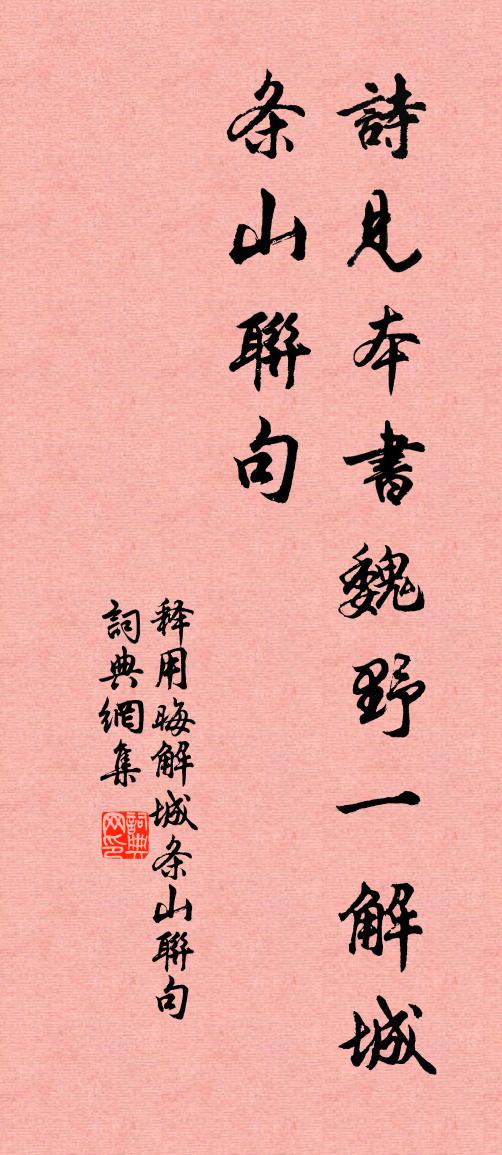 詩見本書魏野一解城
条山聯句
释用晦解城条山聯句
詞典網集
詞典网印